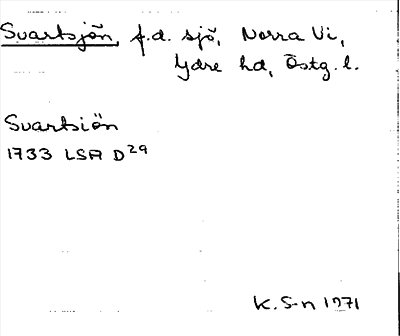 Svartsjön, f.d. sjö, Norra Vi,
Ydre hd, Östg. l.
Svartsiön
1733 LSA D29
K. S-n 1971